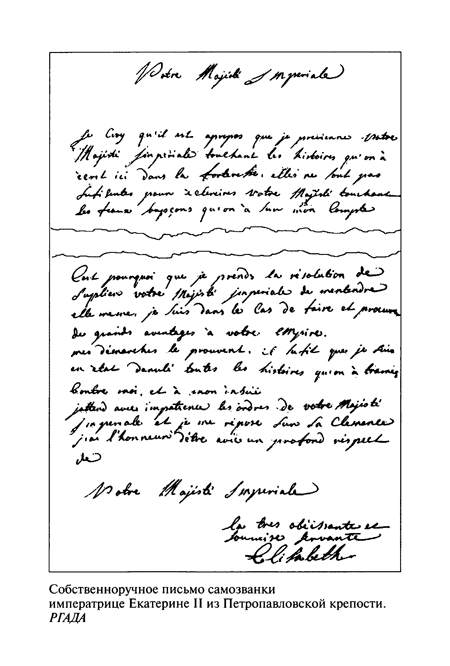 Votre Majisté Imperiale
Je Croy qu'il est apropos que je previenne Votre
Majisté Jmperiale touchant les histoires qu'on à
ecrit ici dans la forteresse, elles ne sont pas
sufisantes pour eclercires Votre Majisté touchant
les faux supçons qu'on à sur mon Compte
C'est pourquoi que je prends la résolution de
Suplier votre Majisté jmperiale de m'entendre
elle meme, je suis dans le Cas de faire et procure
de grands aventages à votre empire.
mes démarches le prouvent, il sufit que je suis
en etat d'anuler toutes les histoires qu'on à tramés
Contre moi, et à mon insüe
j'attend avec impatience les ordres de votre Majisté
jmperiale et je me repose sur sa Clemence
j'ai l'honneur d'être avec un profond respect
de
Votre Majisté Imperiale
la tres obeissante et
soumise servante
Elisabeth
Собственноручное письмо самозванки
императрице Екатерине II из Петропавловской крепости.
РГАДА